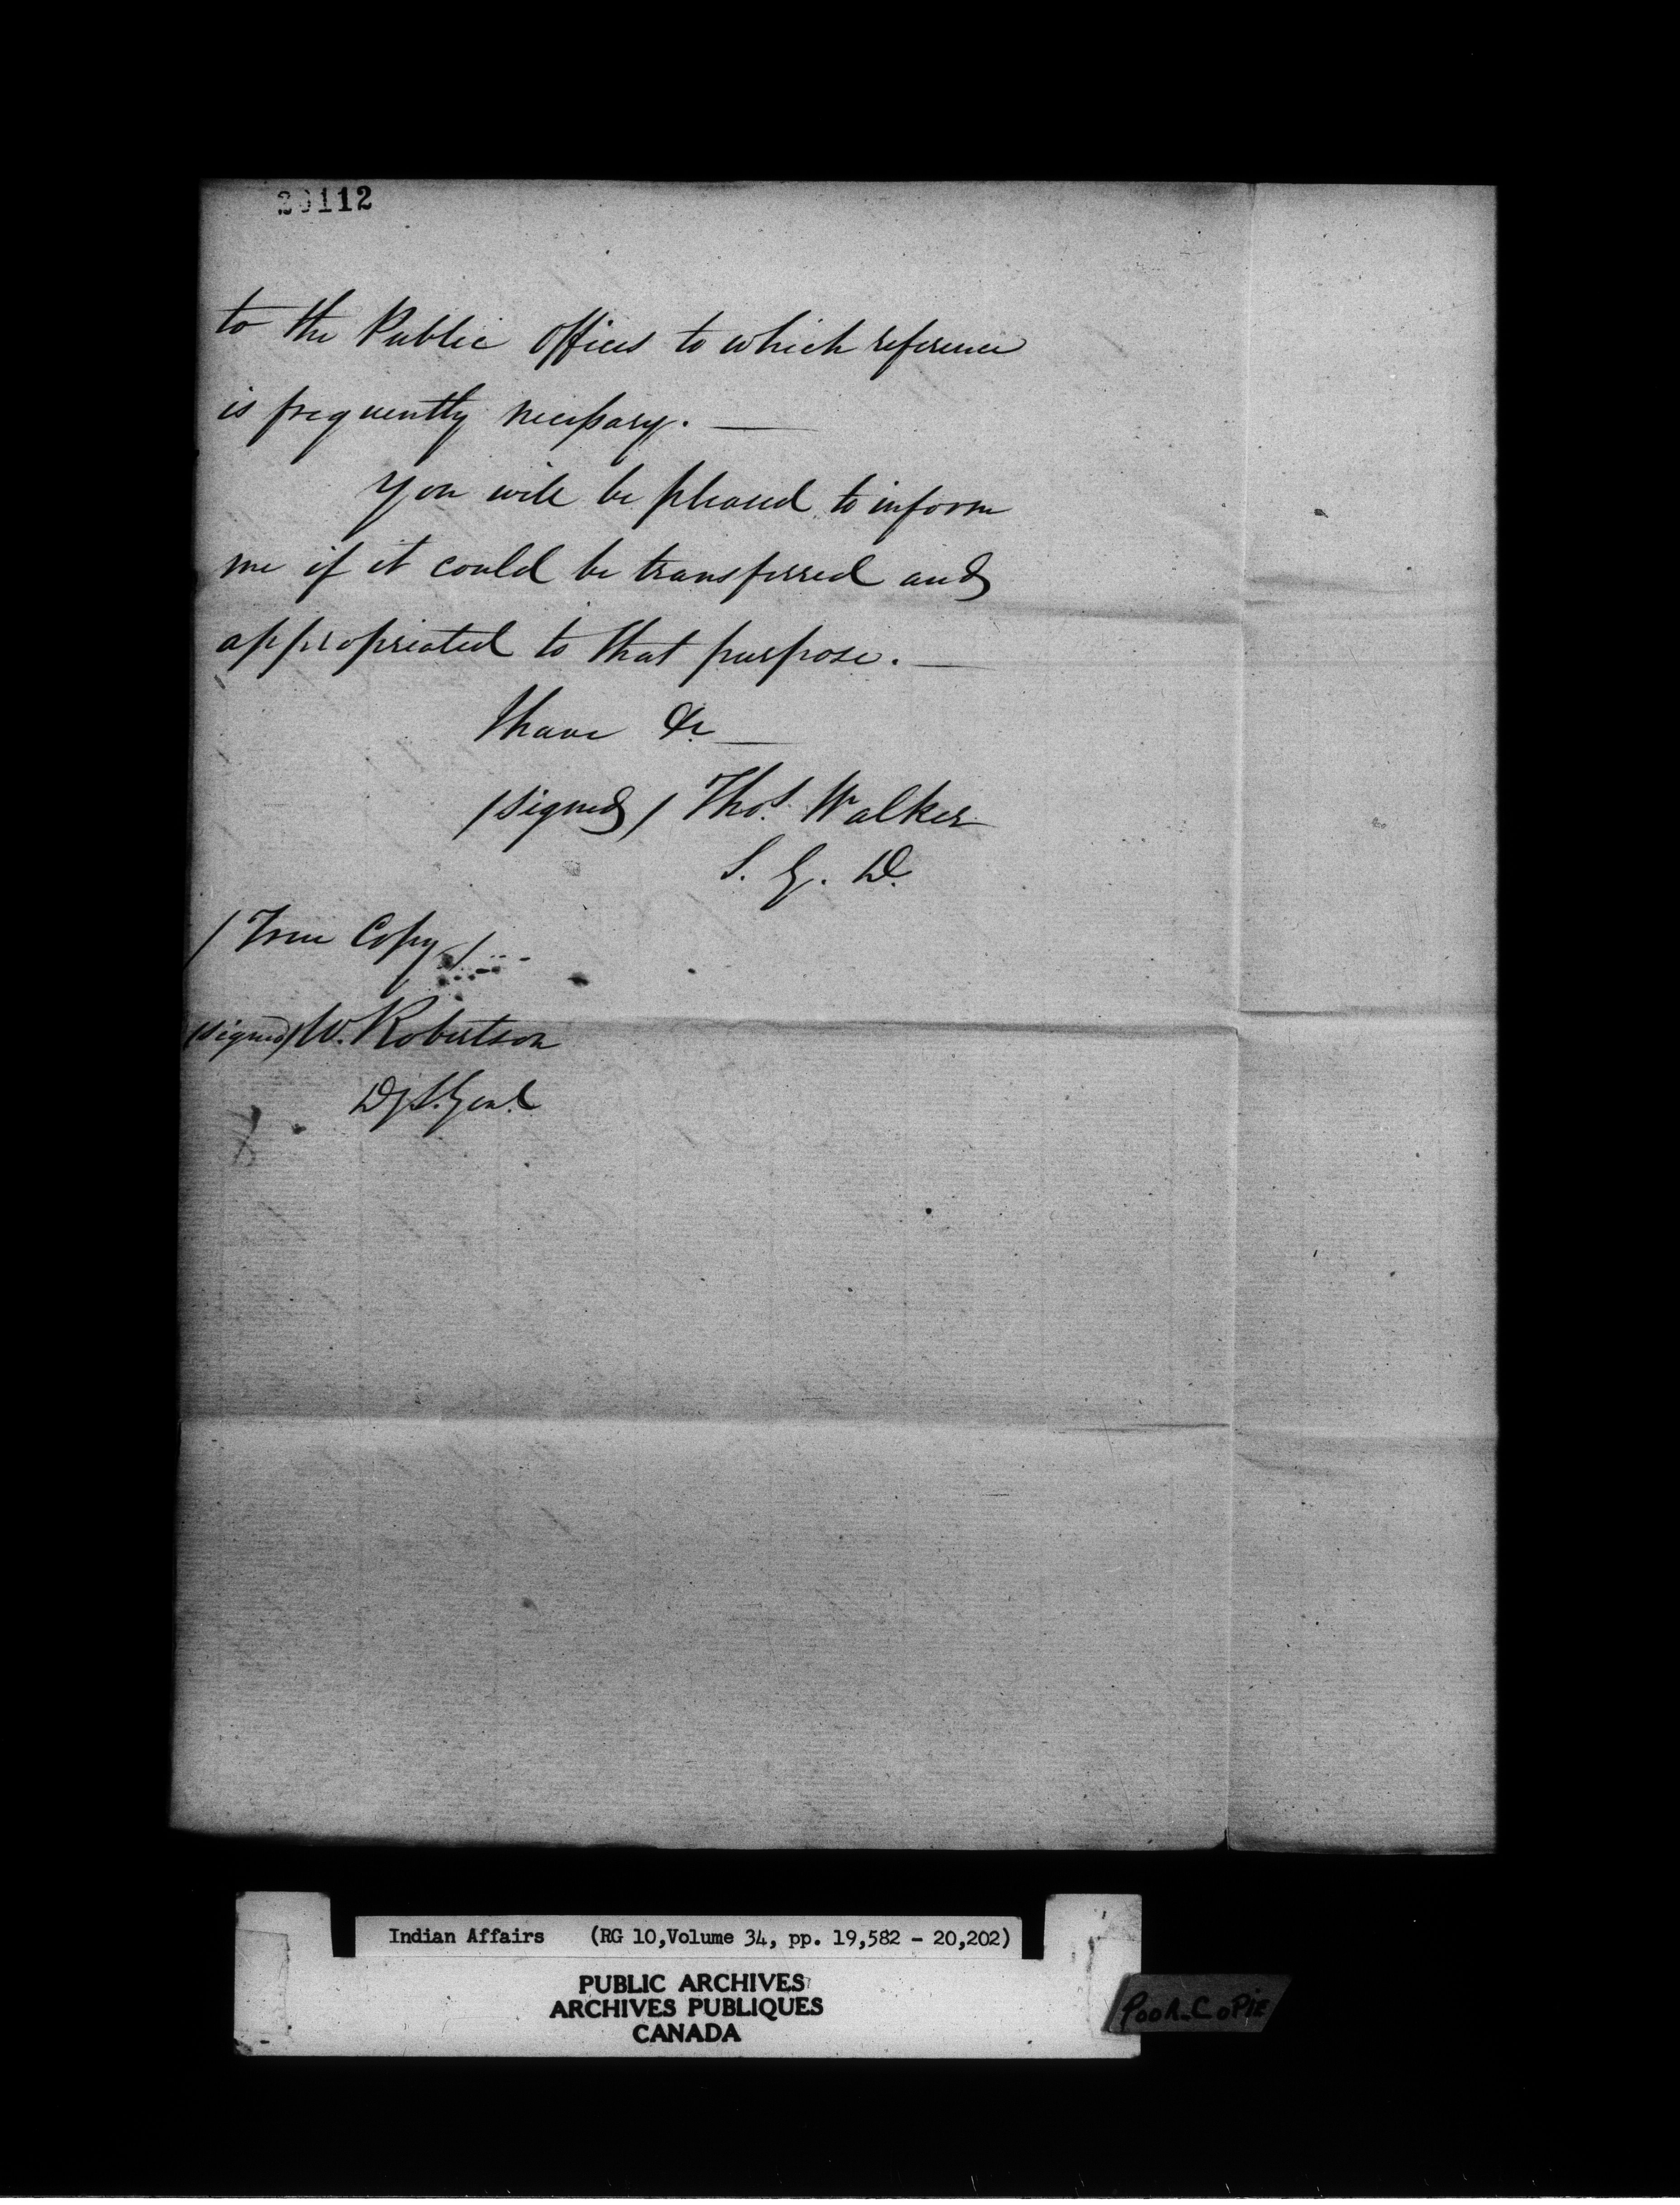 20112
to the Public Offices to which reference
is frequently necessary. —
You will be pleased to inform
me if it could be transferred and
appropriated to that purpose. —
I have &c —
/signed/ Thos. Walker
S. G. D.
/True Copy/
/signed/ W. Robertson
D/S. Genl
Indian Affairs (RG 10,Volume 34, pp. 19,582 - 20,202)
PUBLIC ARCHIVES
ARCHIVES PUBLIQUES
CANADA
POOR_COPIE